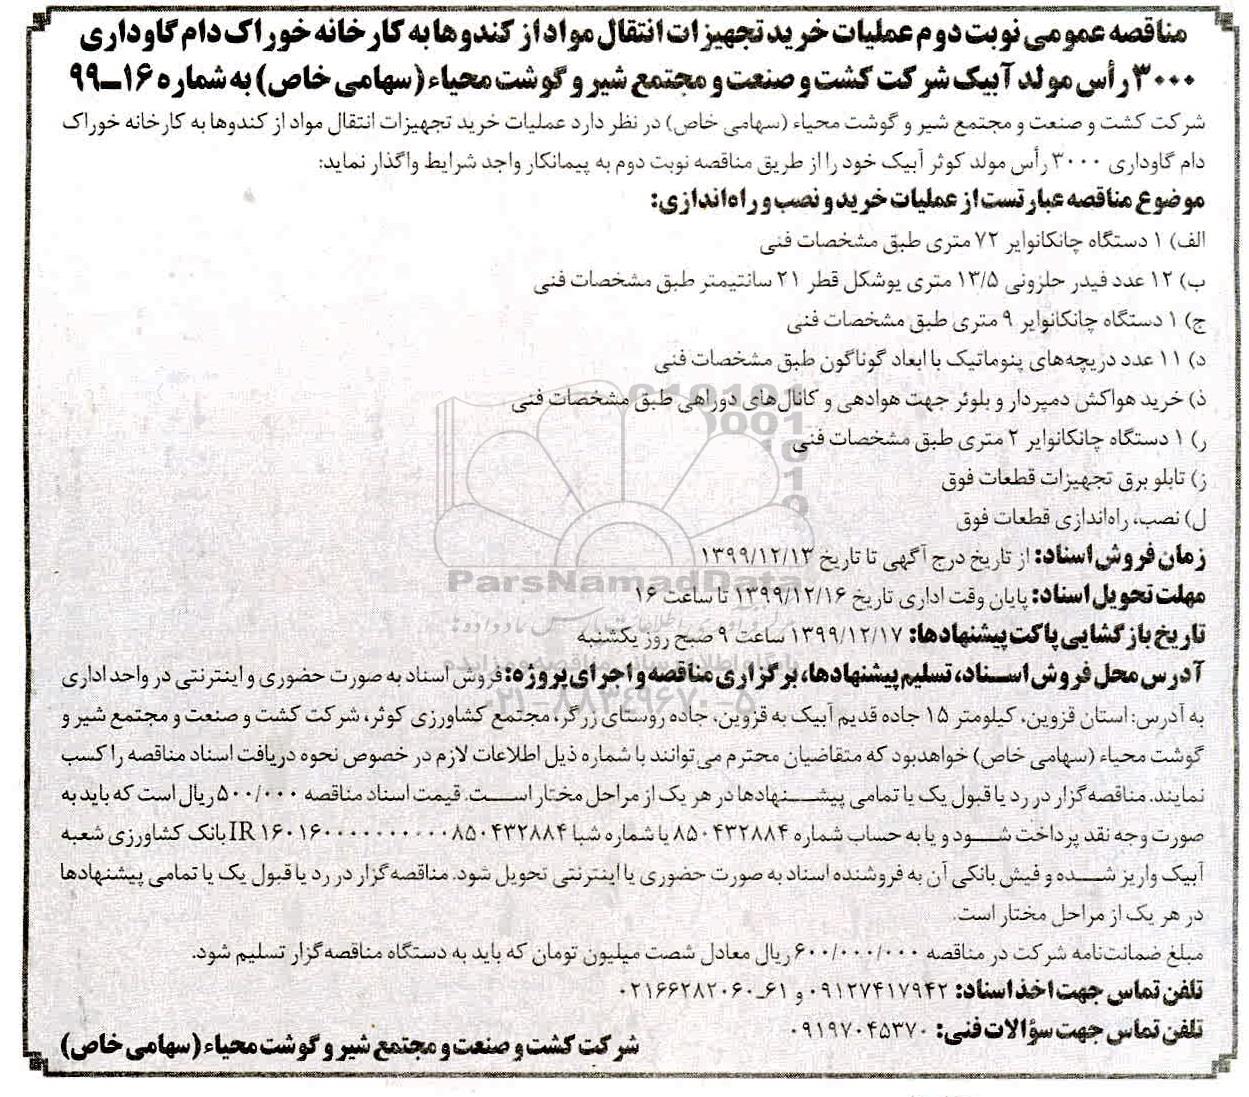 مناقصه عمومی نوبت دوم عملیات خرید تجهیزات انتقال مواد از کندوها به کارخانه خوراک دام گاوداری
۳۰۰۰ رأس مولد آبیک شرکت کشت و صنعت و مجتمع شیر و گوشت محیاء (سهامی خاص) به شماره ۱۶ـ۹۹
شرکت کشت و صنعت و مجتمع شیر و گوشت محیاء (سهامی خاص) در نظر دارد عملیات خرید تجهیزات انتقال مواد از کندوها به کارخانه خوراک
دام گاوداری ۳۰۰۰ رأس مولد کوثر آبیک خود را از طریق مناقصه نوبت دوم به پیمانکار واجد شرایط واگذار نماید:
موضوع مناقصه عبارتست از عملیات خرید و نصب و راه‌اندازی:
الف) ۱ دستگاه چانکانوایر ۷۲ متری طبق مشخصات فنی
ب) ۱۲ عدد فیدر حلزونی ۱۳/۵ متری یوشکل قطر ۲۱ سانتیمتر طبق مشخصات فنی
ج) ۱ دستگاه چانکانوایر ۹ متری طبق مشخصات فنی
د) ۱۱ عدد دریچه‌های پنوماتیک با ابعاد گوناگون طبق مشخصات فنی
ذ) خرید هواکش دمپردار و بلوئر جهت هوادهی و کانال‌های دوراهی طبق مشخصات فنی
ر) ۱ دستگاه چانکانوایر ۲ متری طبق مشخصات فنی
ز) تابلو برق تجهیزات قطعات فوق
ل) نصب، راه‌اندازی قطعات فوق
زمان فروش اسناد: از تاریخ درج آگهی تا تاریخ ۱۳۹۹/۱۲/۱۳
ParsNamadData
مهلت تحویل اسناد: پایان وقت اداری تاریخ ۱۳۹۹/۱۲/۱۶ تا ساعت ۱۶
تاریخ بازگشایی پاکت پیشنهادها: ۱۳۹۹/۱۲/۱۷ ساعت ۹ صبح روز یکشنبه
آدرس محل فروش اسناد، تسلیم پیشنهادها، برگزاری مناقصه و اجرای پروژه: فروش اسناد به صورت حضوری و اینترنتی در واحد اداری
۰۲۱-۸۸۳۴۹۶۷۰-۵
به آدرس: استان قزوین، کیلومتر ۱۵ جاده قدیم آبیک به قزوین، جاده روستای زرگر، مجتمع کشاورزی کوثر، شرکت کشت و صنعت و مجتمع شیر و
گوشت محیاء (سهامی خاص) خواهدبود که متقاضیان محترم می‌توانند با شماره ذیل اطلاعات لازم در خصوص نحوه دریافت اسناد مناقصه را کسب
نمایند. مناقصه‌گزار در رد یا قبول یک یا تمامی پیشنهادها در هر یک از مراحل مختار است. قیمت اسناد مناقصه ۵۰۰/۰۰۰ ریال است که باید به
صورت وجه نقد پرداخت شود و یا به حساب شماره ۸۵۰۴۳۲۸۸۴ یا شماره شبا IR ۱۶۰۱۶۰۰۰۰۰۰۰۰۰۰۰۸۵۰۴۳۲۸۸۴ بانک کشاورزی شعبه
آبیک واریز شده و فیش بانکی آن به فروشنده اسناد به صورت حضوری یا اینترنتی تحویل شود. مناقصه‌گزار در رد یا قبول یک یا تمامی پیشنهادها
در هر یک از مراحل مختار است.
مبلغ ضمانت‌نامه شرکت در مناقصه ۶۰۰/۰۰۰/۰۰۰ ریال معادل شصت میلیون تومان که باید به دستگاه مناقصه‌گزار تسلیم شود.
تلفن تماس جهت اخذ اسناد: ۰۹۱۲۷۴۱۷۹۴۲ و ۶۱ـ۰۲۱۶۶۲۸۲۰۶۰
تلفن تماس جهت سؤالات فنی: ۰۹۱۹۷۰۴۵۳۷۰
شرکت کشت و صنعت و مجتمع شیر و گوشت محیاء (سهامی خاص)